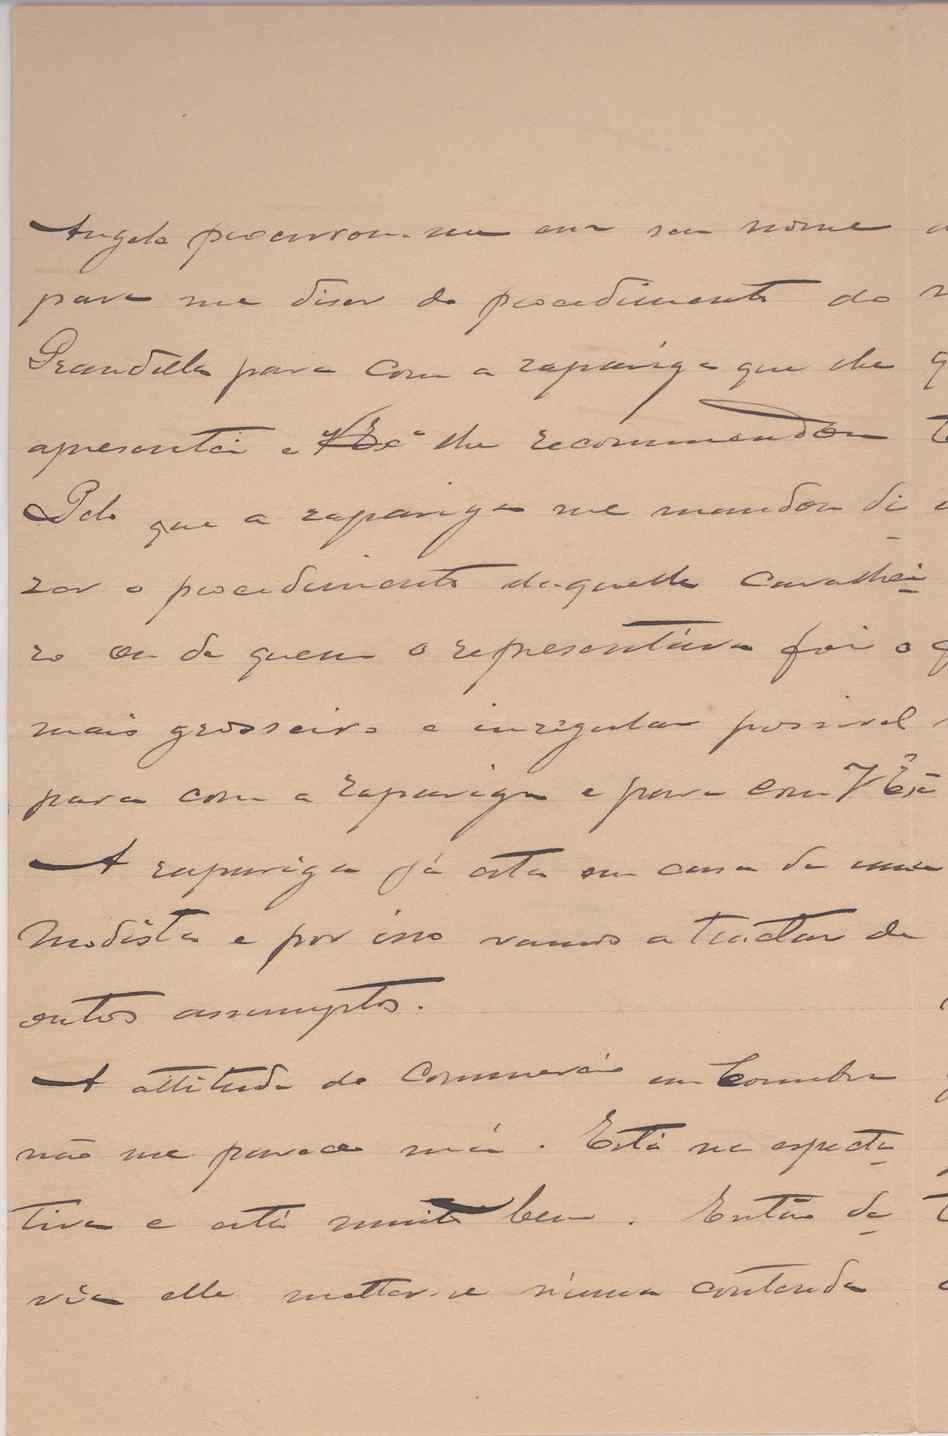 Angelo procurou-me em seu nome
para me diser do procedimento do
Grandella para com a rapariga que lhe
apresentei e V Exª lhe recommendou
Pelo que a rapariga me mandou di
zer o procedimento daquelle cavalhei
ro ou de quem o representava foi o
mais grosseiro e irregular possivel
para com a rapariga e para com V Exª
A rapariga já está em casa de uma
Modista e por isso vamos a tractar de
outros assumptos.
A attitude do commercio em Coimbra
não me parece má. Está na espécta
tiva e está muito bem. Então de
via elle metter-se n'uma contenda